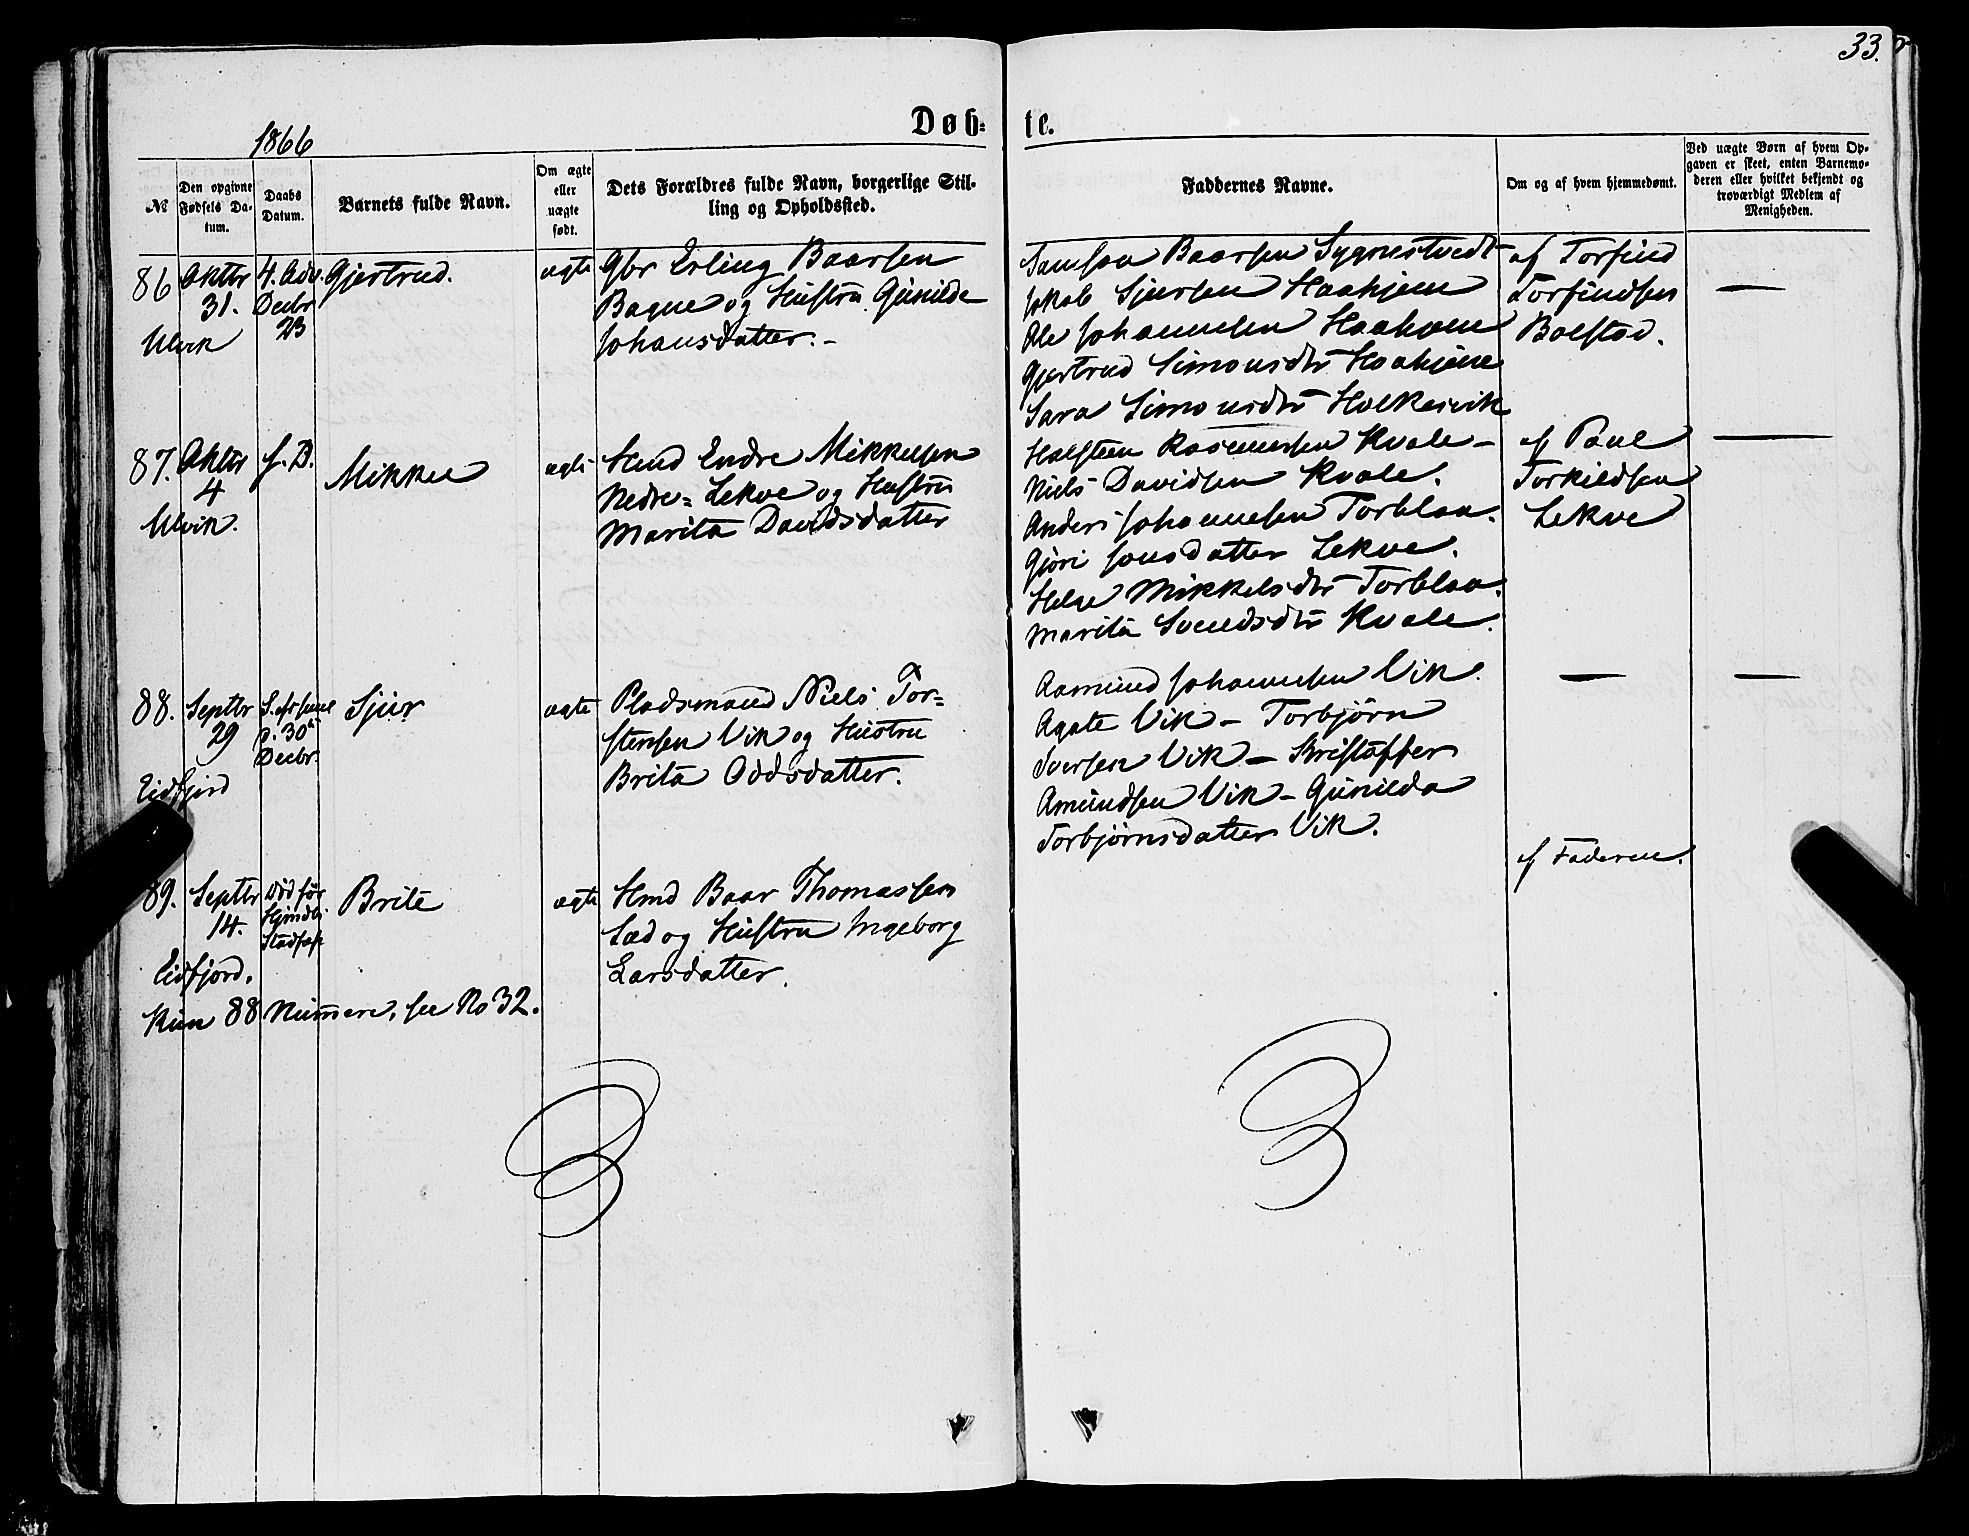 33.
Døb-
te.
1866
№
Den opgivne Fødsels Da-
tum.
Daabs Datum.
Barnets fulde Navn.
Om ægte eller uægte født.
Dets Forældres fulde Navn, borgerlige Stil-
ling og Opholdssted.
Faddernes Navne.
Om og af hvem hjemmedøbt.
Ved uægte Børn af hvem Op-
gaven er skeet, enten Barnemo-
deren eller hvilket bekjendt og
troværdigt Medlem af
Menigheden.
86 Oktbr 31. Ulvik
4. Adv. Decbr 23
Gjertrud.
ægte
Gbr Erling Baarsen
Bagne og Hustru Gunilde
Johansdatter. -
Samson Baarsen Sygnestvedt
Jakob Sjursen Haahjem
Ole Johannesen Haahjem
Gjertrud Simonsdtr Haahjem
Sara Simonsdtr Holkesvik
af Torfind
Torfindsen
Bolstad.
—
87. Oktbr 4 Ulvik.
s. D.
Mikkel
ægte
Hmd Endre Mikkelsen
Nedre- Lekve og Hustru
Marita Davidsdatter
Halsteen Rasmussen Kvale -
Niels Davidsen Kvale.
Anders Johannesen Torblaa.
Gjøri Jonsdatter Lekve.
Helge Mikkelsdtr Torblaa.
Marita Svendsdtr Kvale.
af Paul
Torkildsen
Lekve
—
88. Septbr 29 Eidfjord
S. efr Juul d. 30te Decbr.
Sjur
ægte
Pladsmand Niels Tor-
stensen Vik og Hustru
Brita Oddsdatter.
Aamund Johannesen Vik.
Agate Vik - Torbjørn
Iversen Vik - Kristoffer
Amundsen Vik - Gunilda
Torbjørnsdatter Vik.
—
—
89. Septbr 14. Eidfjord.
Død før Hjmdb. Stadfæst
Brite
ægte
Hmd Baar Thomassen
Sæd og Hustru Ingeborg
Larsdatter.
af Faderen.
Kun 88 Numere, see No 32.